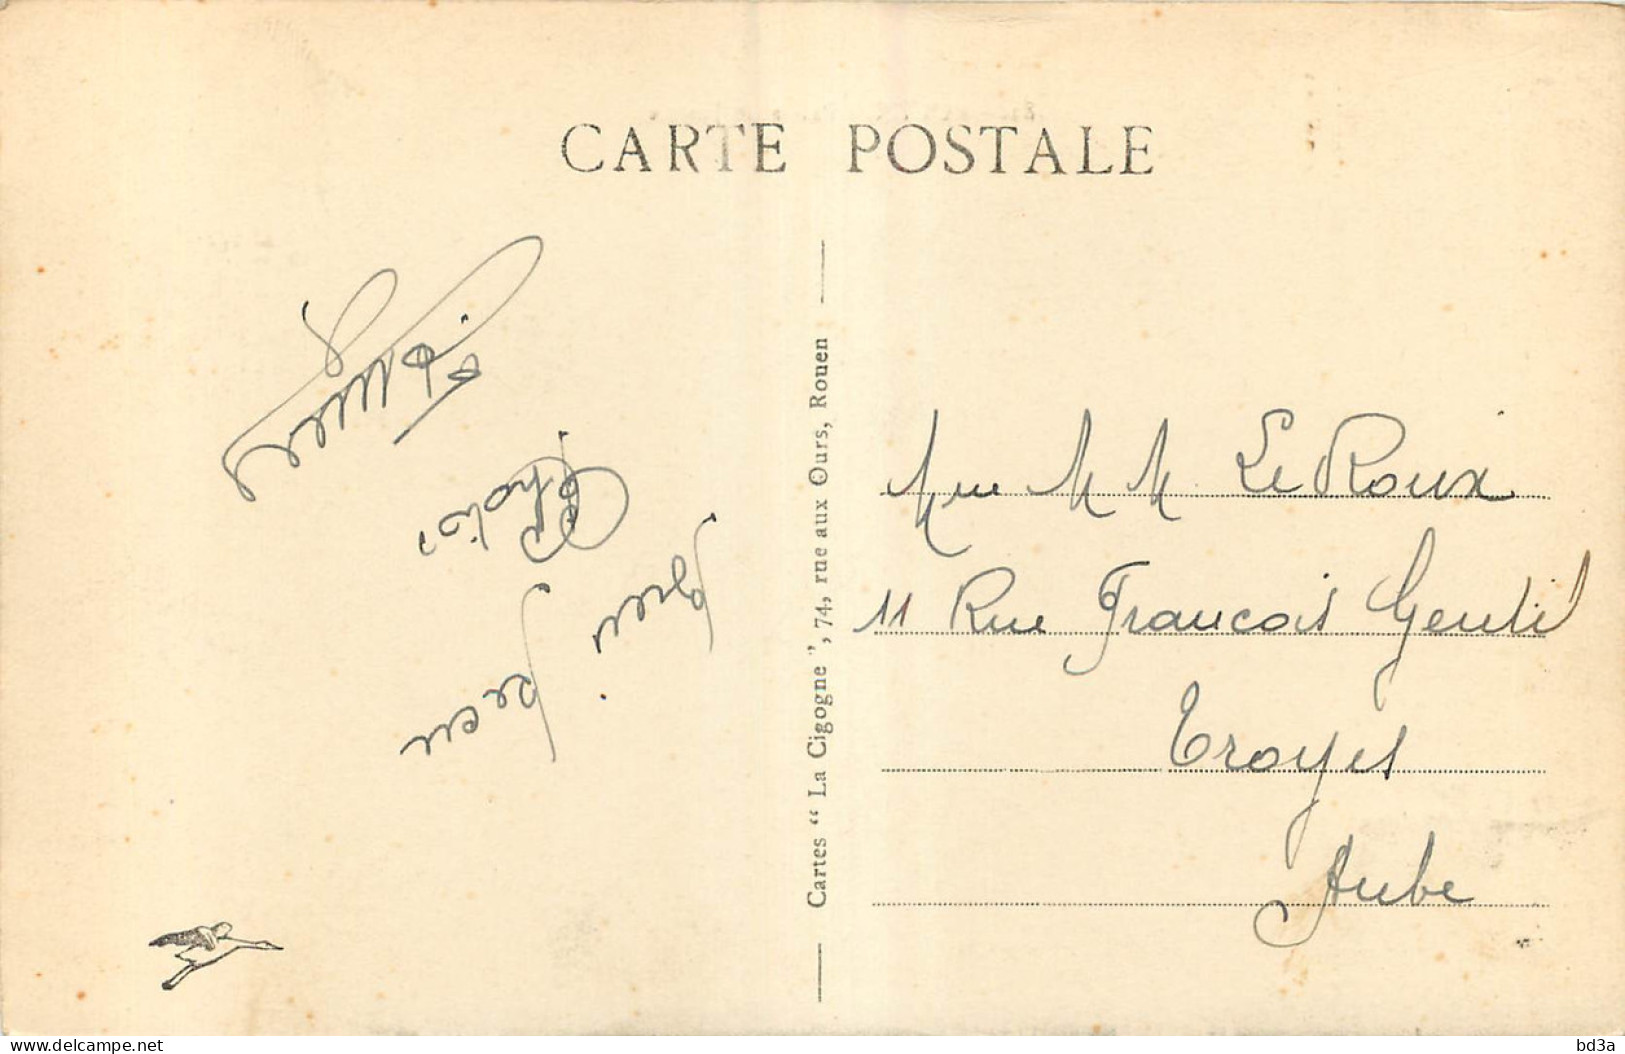 CARTE POSTALE
Bien reçu
Photos
Cartes “ La Cigogne ”, 74, rue aux Ours, Rouen
Mme M M Le Roux
11 Rue Francois Gentil
Troyes
Aube
delcampe.net
bd3a